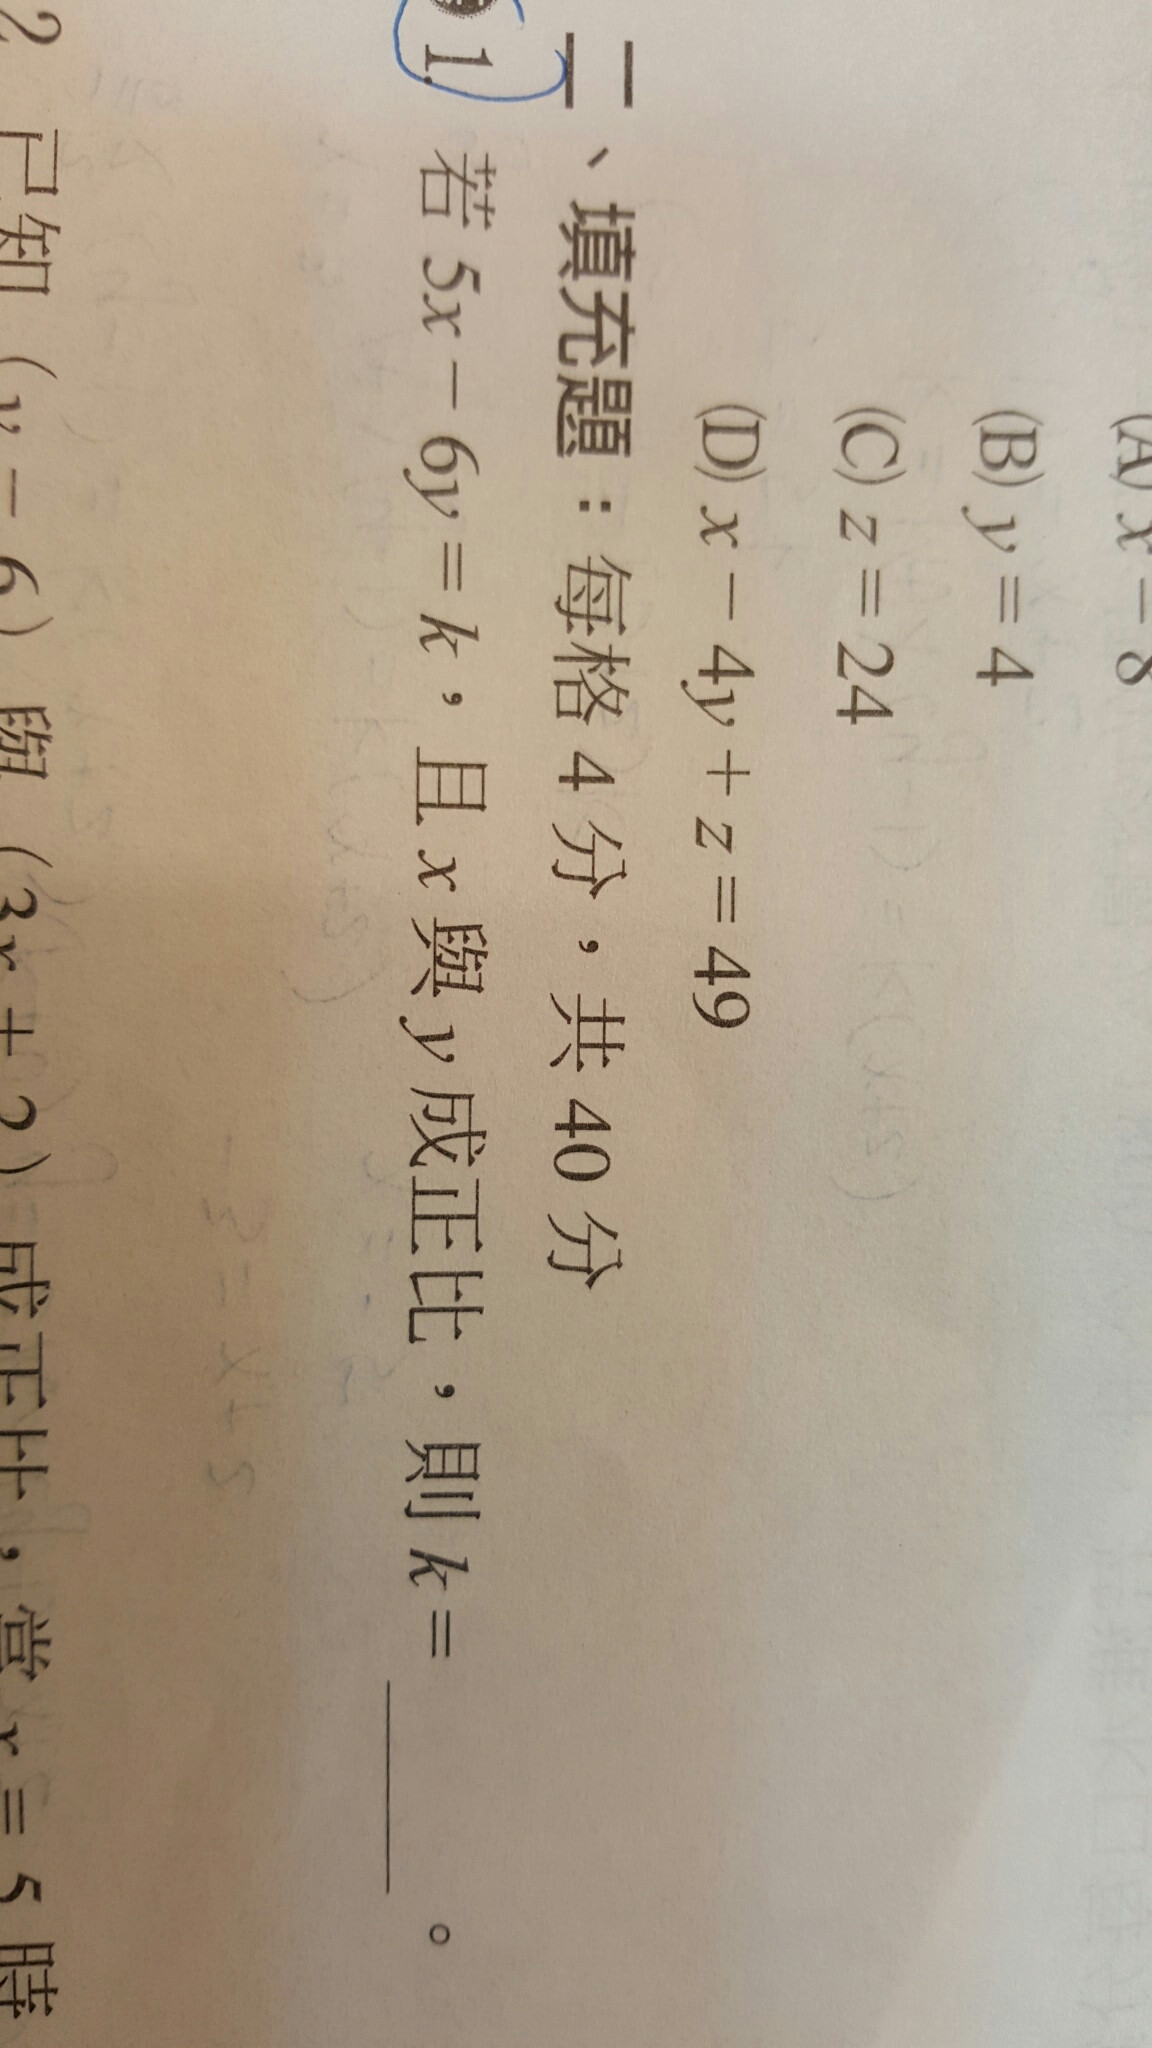 (A) x − 8
(B) y = 4
(C) z = 24
(D) x − 4y + z = 49
二、填充題：每格 4 分，共 40 分
1. 若 5x − 6y = k，且 x 與 y 成正比，則 k = ______。
2 已知（y − 6）與（3x + 2）成正比，當 x = 5 時